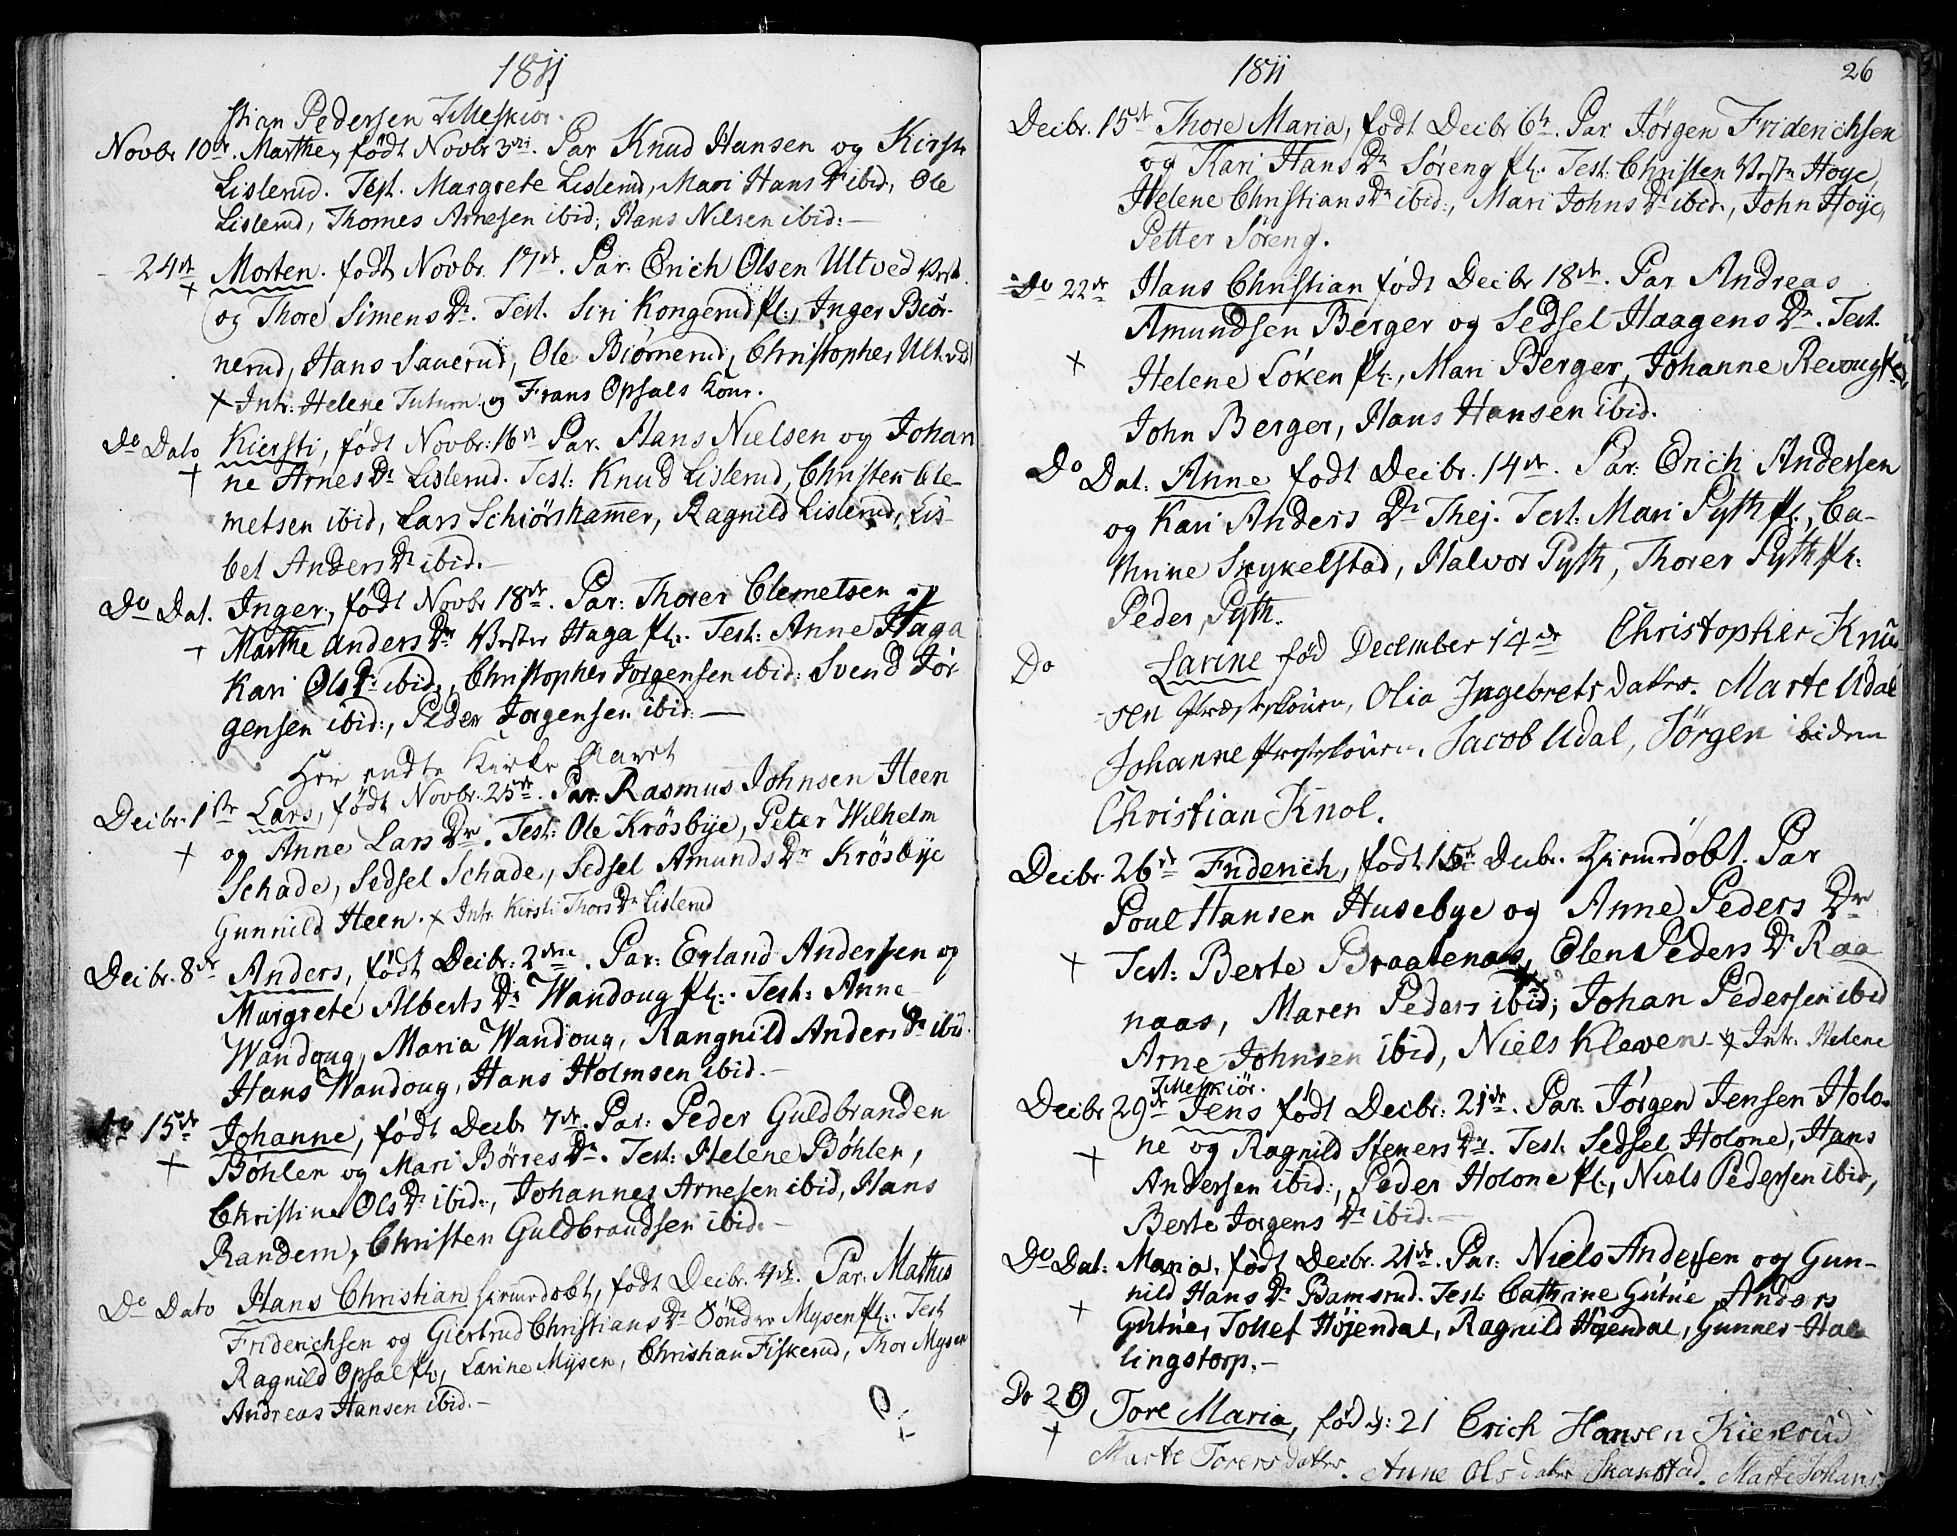 1811
stian Pedersen Lilleskiør.
Novbr 10de. Marthe, født Novbr 3die. Par Knud Hansen og Kirste
Lislerud. Test. Margrete Lislerud, Mari Hans Dr ibid, Ole
Lislerud, Thomes Arnesen ibid; Hans Nilsen ibid:—
24de Morten. født Novbr. 17de. Par: Erich Olsen Ultved
+ og Thore Simens Dr. Test. Siri Kongerud fl:, Inger Biør-
nerud, Hans Sauerud, Ole Biørnerud, Christopher Ultved
+ Intr: Helene Tuturn og Frans Opsals Kone.
Do Dato Kiersti, født Novbr: 16de Par. Hans Nielsen og Johan
+ ne Arnes Dr Lislerud. Test: Knud Lislerud, Christen Cle-
metsen ibid, Lars Schiørshammer, Ragnild Lislerud, Lis-
bet Anders Dr ibid.—
Do Dat. Inger, født Novbr 18de. Par: Thorer Clemetsen og
+ Marthe Anders Dr Vester Haga fl:. Test: Anne Haga
Kari Ols Dr ibid:, Christopher Jorgensen ibid: Svend Jør-
gensen ibid:, Peder Jorgensen ibid.—
Her endte Kirke Aaret
Decibr. 1ste Lars, født Novbr. 25de. Par: Rasmus Johnsen Heen
+ og Anne Lars Dr. Test: Ole Krösbye, Peter Wilhelm
Schade, Sedsel Schade, Sedsel Amunds Dr Krösbye
Gunnild Heen. + Intr Kirsti Thors Dr Lislerud
Decibr. 8de Anders, født Decibr: 2den. Par: Erland Andersen og
Margrete Alberts Dr Wandoug fl:. Test: Anne
Wandoug, Maria Wandoug, Rangnild Anders Dr ibid.
Hans Wandoug, Hans Holmsen ibid.—
Do 15de Johanne, født Decbr 7de. Par: Peder Guldbranden
+ Bøhler og Mari Börres Dr. Test: Helene Bøhler,
Christine Ols Dr ibid:, Johannes Arnesen ibid, Hans
Randem, Christen Guldbrandsen ibid.—
Do Dato Hans Christian hiemedobt, født Decibr. 4de. Par: Mathis
Friderichsen og Giertrud Christians Dr Söndre Mysen fl:. Test
Ragnild Opsal fl, Larine Mysen, Christian Fiskerud, Thor Mysen
Andreas Hansen ibid.—
1811
26
Decibr. 15de Thore Maria, født Decibr 6te. Par Jörgen Friderichsen
og Kari Hans Dr Søreng fl:. Test: Christen Høye
Helene Christians Dr ibid:, Mari Johns Dr ibid., John Høye,
Petter Søreng.
Do 22de Hans Christian født Decibr 18de. Par Andreas
Amundsen Berger og Sedsel Haagens Dr. Test.
+ Helene Löken fl:, Mari Berger, Johanne
John Berger, Hans Hansen ibid.
Do Dat: Anne født Decibr. 14de. Par: Erich Andersen
og Kari Anders Dr Thej. Test: Mari Pyth fl:, Ca-
thrine Skykelstad, Halvor Pyth, Thorer Pyth fl:
Peder Pyth.
Do Larine fød December 14de Christopher Knu
sen Olia Ingebrets datter. Marte Udal
Johanne Jacob Udal, Jörgen ibidem
Christian Knol.
Decibr 26de Friderich, født 15de Decbr. hiemedöbt. Par
Poul Hansen Husebye og Anne Peders Dr
+ Test: Berte Braatenaas, Elen Peders Dr Raa
naas, Maren Peders ibid; Johan Pedersen ibid
Arne Johnsen ibid, Niels Kleven + Intr: Helene
Lilleskiör.
Decibr 29de Jens født Decibr: 21de. Par: Jörgen Jensen Holo-
+ ne og Ragnild Steners Dr. Test: Sedsel Holone, Hans
Andersen ibid:, Peder Holone fl:, Niels Pedersen ibid,
Berte Jorgens Dr ibid.—
Do Dat: Maria, født Decibr. 21de. Par: Niels Andersen og Gun-
nild Hans Dr Bamsrud. Test: Cathrine Gutue, Anders
+ Gutue, Tollef Höjendal, Ragnild Höjendal, Gunner Hal
lingstorp.—
Do 29 Tore Maria, fød d: 21 Erich Hansen Kiserud
+ Marte Torers datter. Anne Ols datter Skakstad. Marte Johans